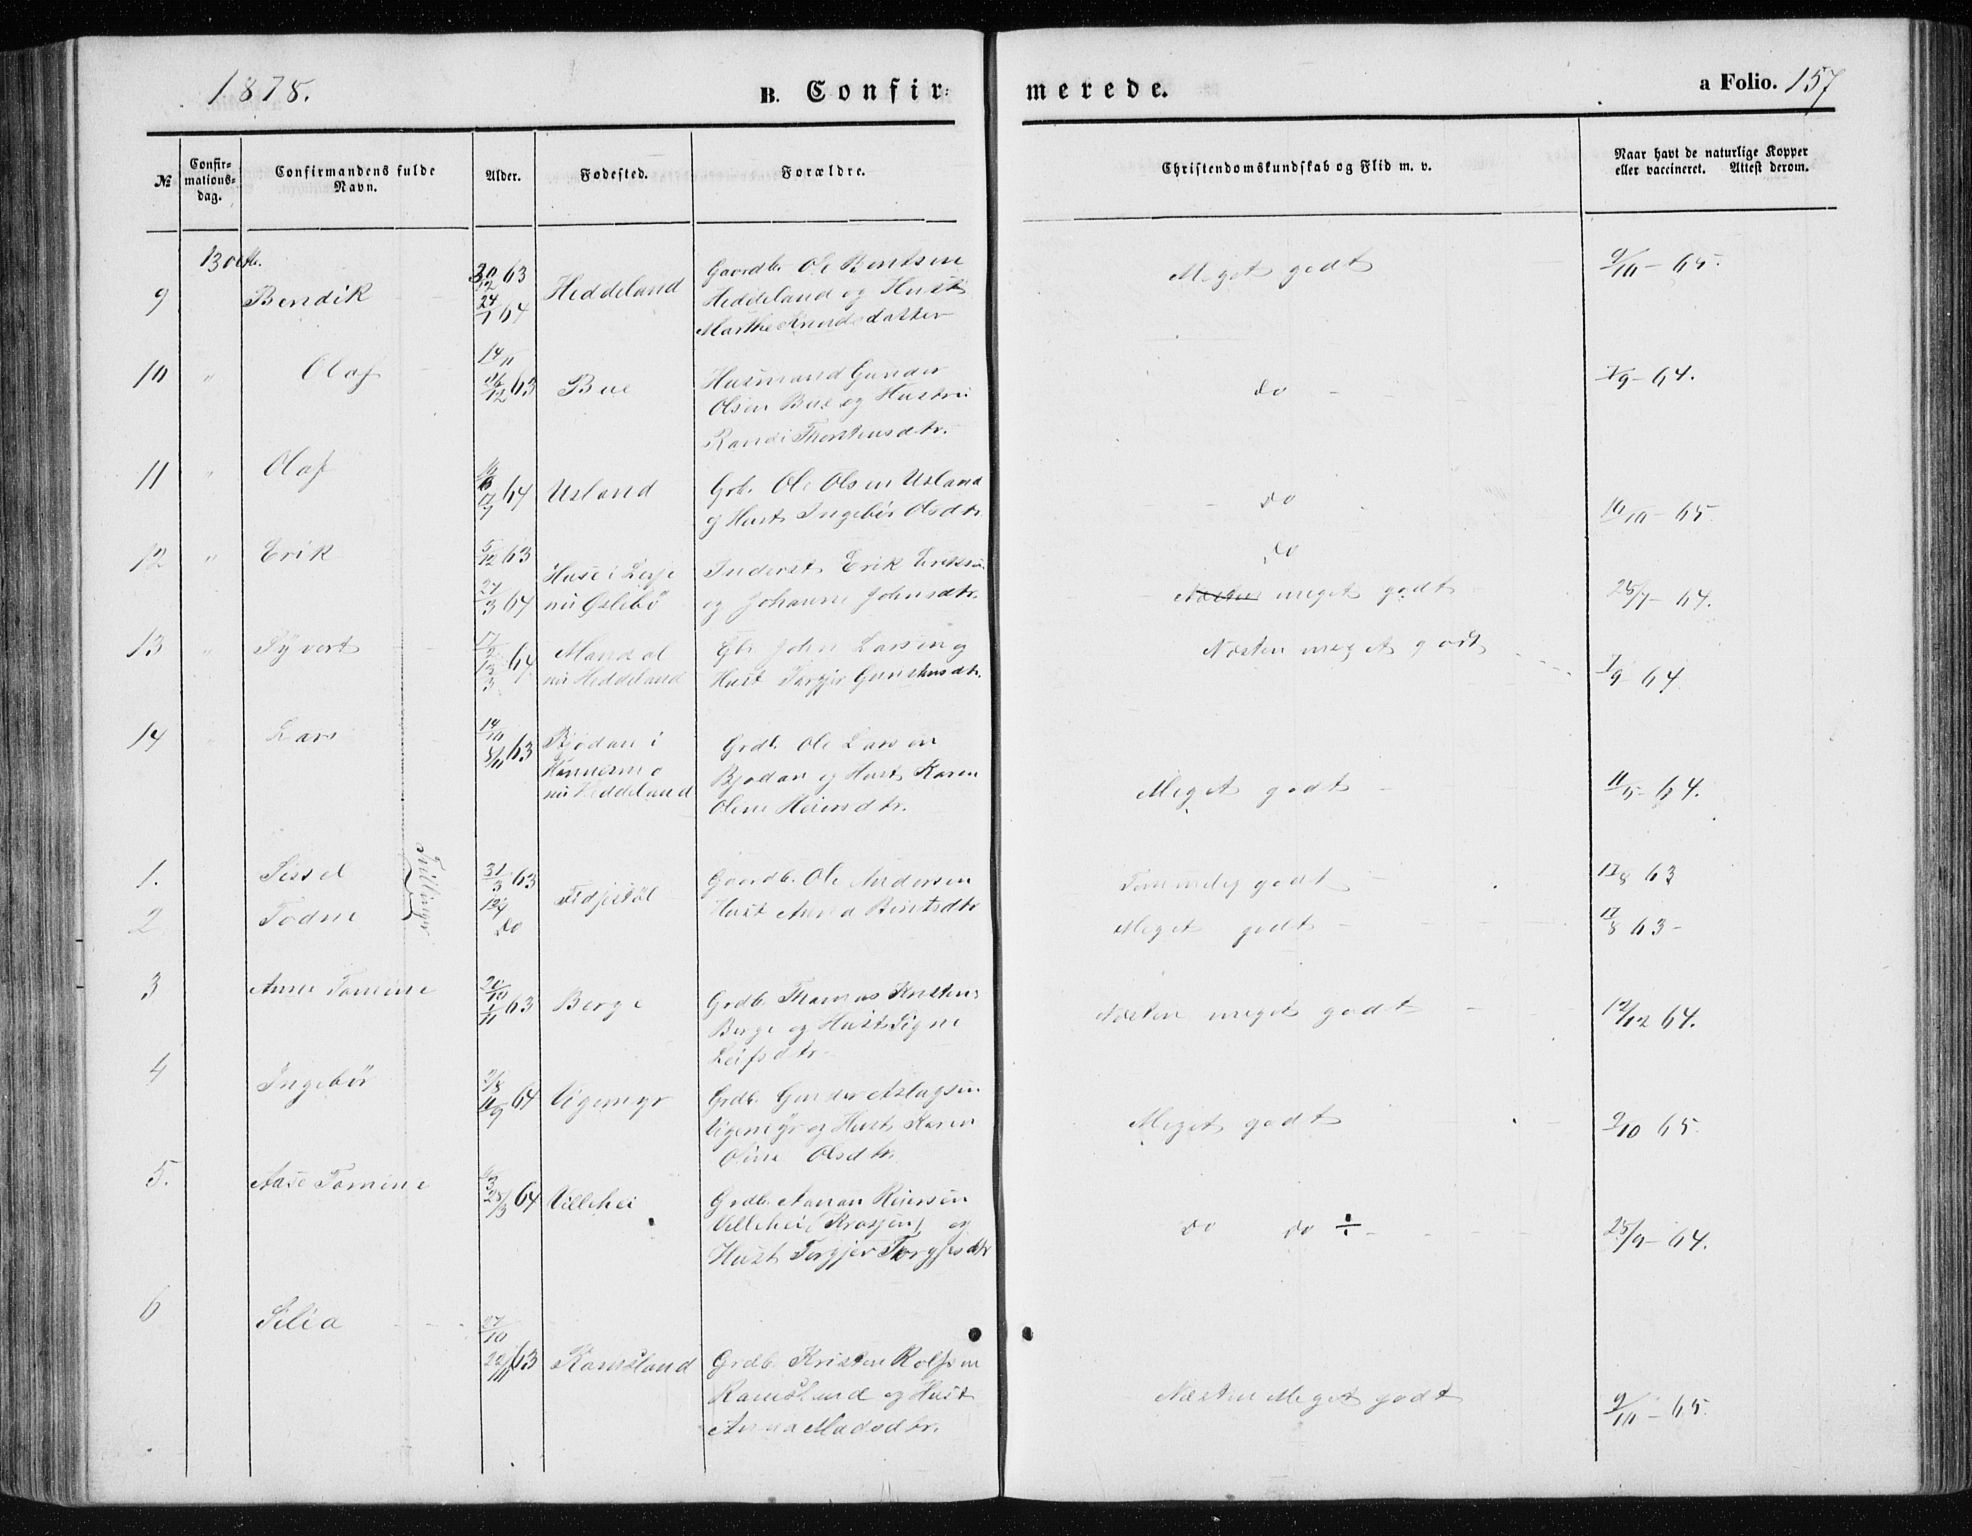 1878.
B. Confir- merede.
a Folio. 157
№
Confir-
mations-
dag.
Confirmandens fulde
Navn.
Alder.
Fødested.
Forældre.
Christendomskundskab og Flid m. v.
Naar havt de naturlige Kopper
eller vaccineret. Attest derom.
13 octb.
9 Bendik 20/12 63 24/1 64 Heddeland
Gaardb. Ole Bentsen
Heddeland og Hust
Marthe Knudsdatter
Meget godt
9/10 - 65.
10 " Olaf 14/11 26/12 63 Bue
Husmand Gunder
Olsen Bue og Hustru
Randi Thorstensdtr.
do
1/9 - 64.
11 " Olaf 64 Usland
Grb. Ole Olsen Usland
og Hust Ingebør Olsdtr
do
16/10 - 65.
12 " Erik 5/12 63 27/3 64
Huse i
nu Øslebø
Inderst Erik Eriksen
og Johanne Johnsdtr.
do
Næsten meget godt
25/9 - 64.
13 " Syvert 64
Mandal
nu Heddeland
Gb. John Larsen og
Hust Torgjer Gunstensdtr.
Næsten meget godt
1/9 64
14 " Lars 14/10 8/11 63
Bjødan i
nu Heddeland
Grdb. Ole Larsen
Bjødan og Hust Karen
Olene
Meget godt
11/5 - 64.
Tvillinger
1. Sissel 31/3 63 Fidjestøl
Gaardb. Ole Andersen
Hust Anna Bentsdtr
Temmelig godt
17/8 63
2 Todne do
Meget godt
17/8 63 -
3 Anne Tomine 20/10 1/11 63 Berge
Grdb. Thomas Kristens.
Berge og Hust Signe
Leifsdtr
Næsten meget godt
12/12 64.
4 Ingebør 2/8 11/9 64 Vigemyr
Grdb. Gunder Aslagsen
Vigemyr og Hust Karen
Oline Olsdtr.
Meget godt
9/10 65
5. Aase Tomine 28/3 64 Villehei
Grdb. Aanon Reiersen
Villehei og
Hust Torgjer Torgjesdtr
do do ÷
25/9 - 64.
6 Silia 27/10 22/11 63 Ramsland
Grdb. Kristen Rolfsen
Ramsland og Hust
Anna Madsdtr.
Næsten Meget godt
9/10 - 65.